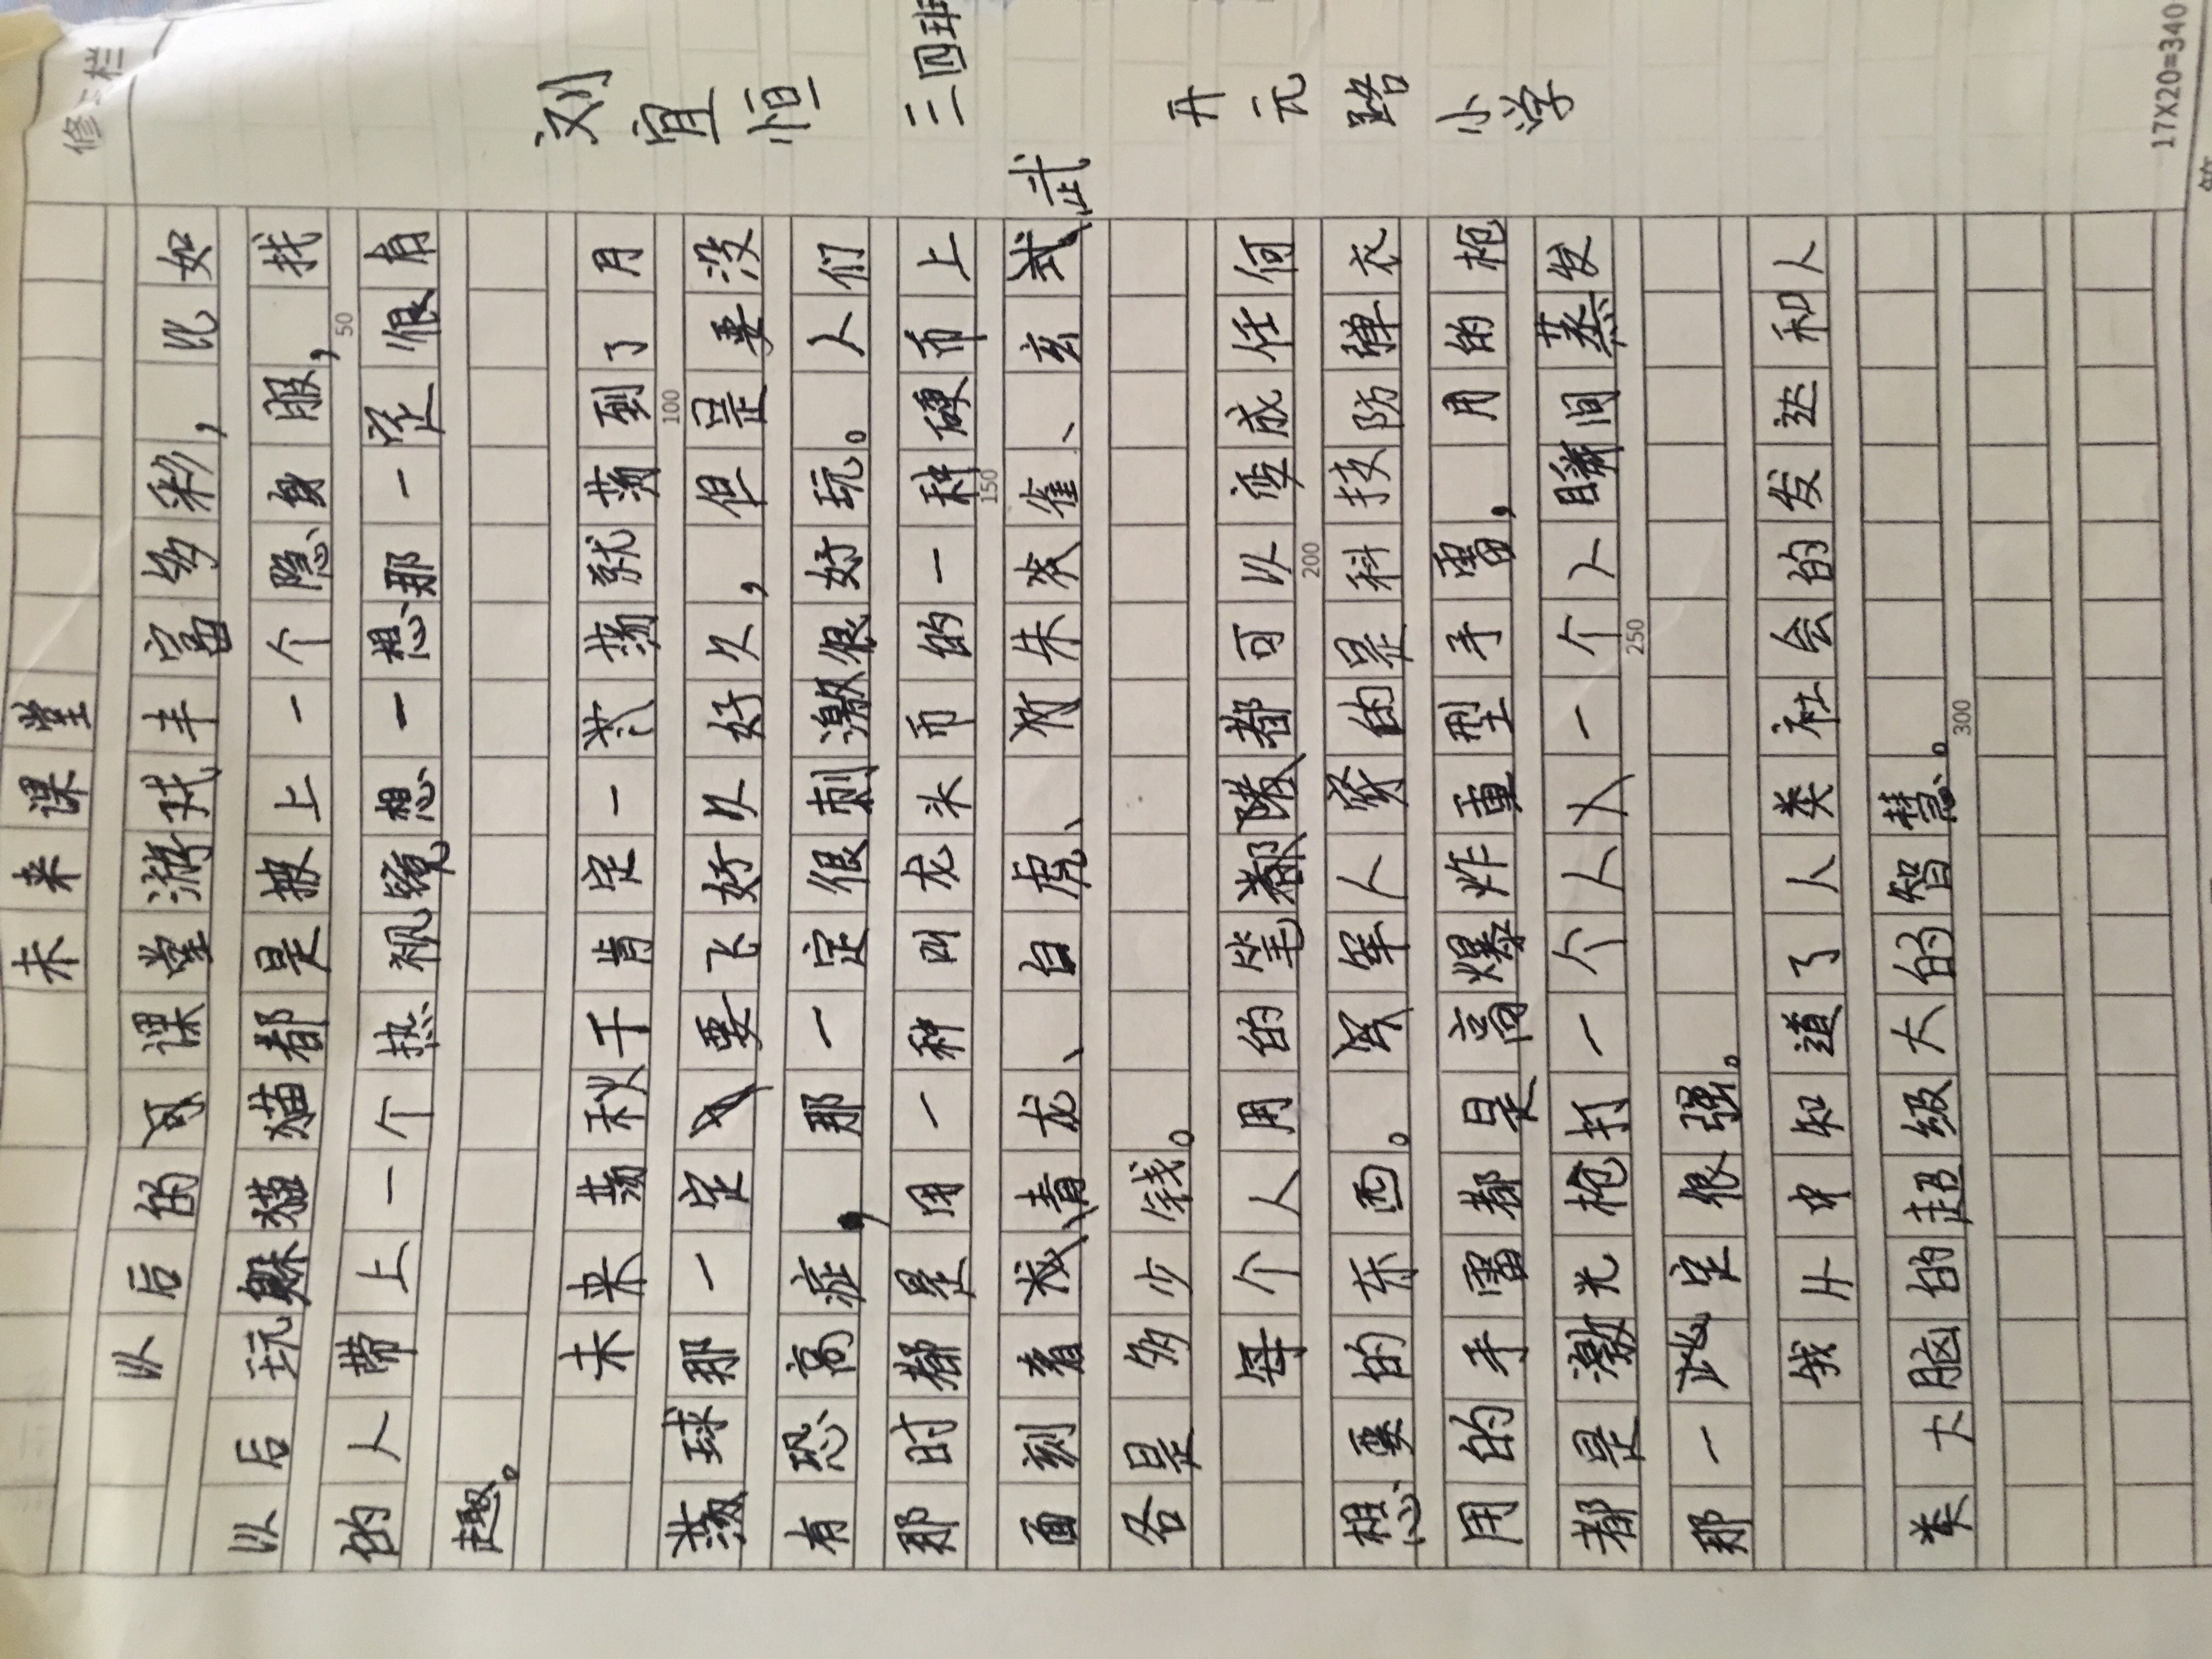 未来课堂
以后的课堂游戏丰富多彩，比如
以后玩躲猫猫都是披上一个隐身服，找
50
的人带上一个热视镜想一想那一定很有
趣。
未来荡秋千肯定一荡就荡到了月
100
球那一定要飞好久好久，但是要没
有恐高症，那一定很刺激很好玩。人们
那时都是用一种叫龙头币的一种硬币上
150
面刻着青龙、白虎、朱雀、玄武
各是多少钱。
每个人用的笔都可以变成任何
200
想要的东西。军人穿的是科技防弹衣
用的手雷都是高爆炸重型手雷，用的枪
都是激光枪打一个人一个人瞬间蒸发
250
那一定很强。
我从中知道了人类社会的发达和人
类大脑的超级大的智慧。
300
刘宜恒
三四班
开元路小学
17X20=340